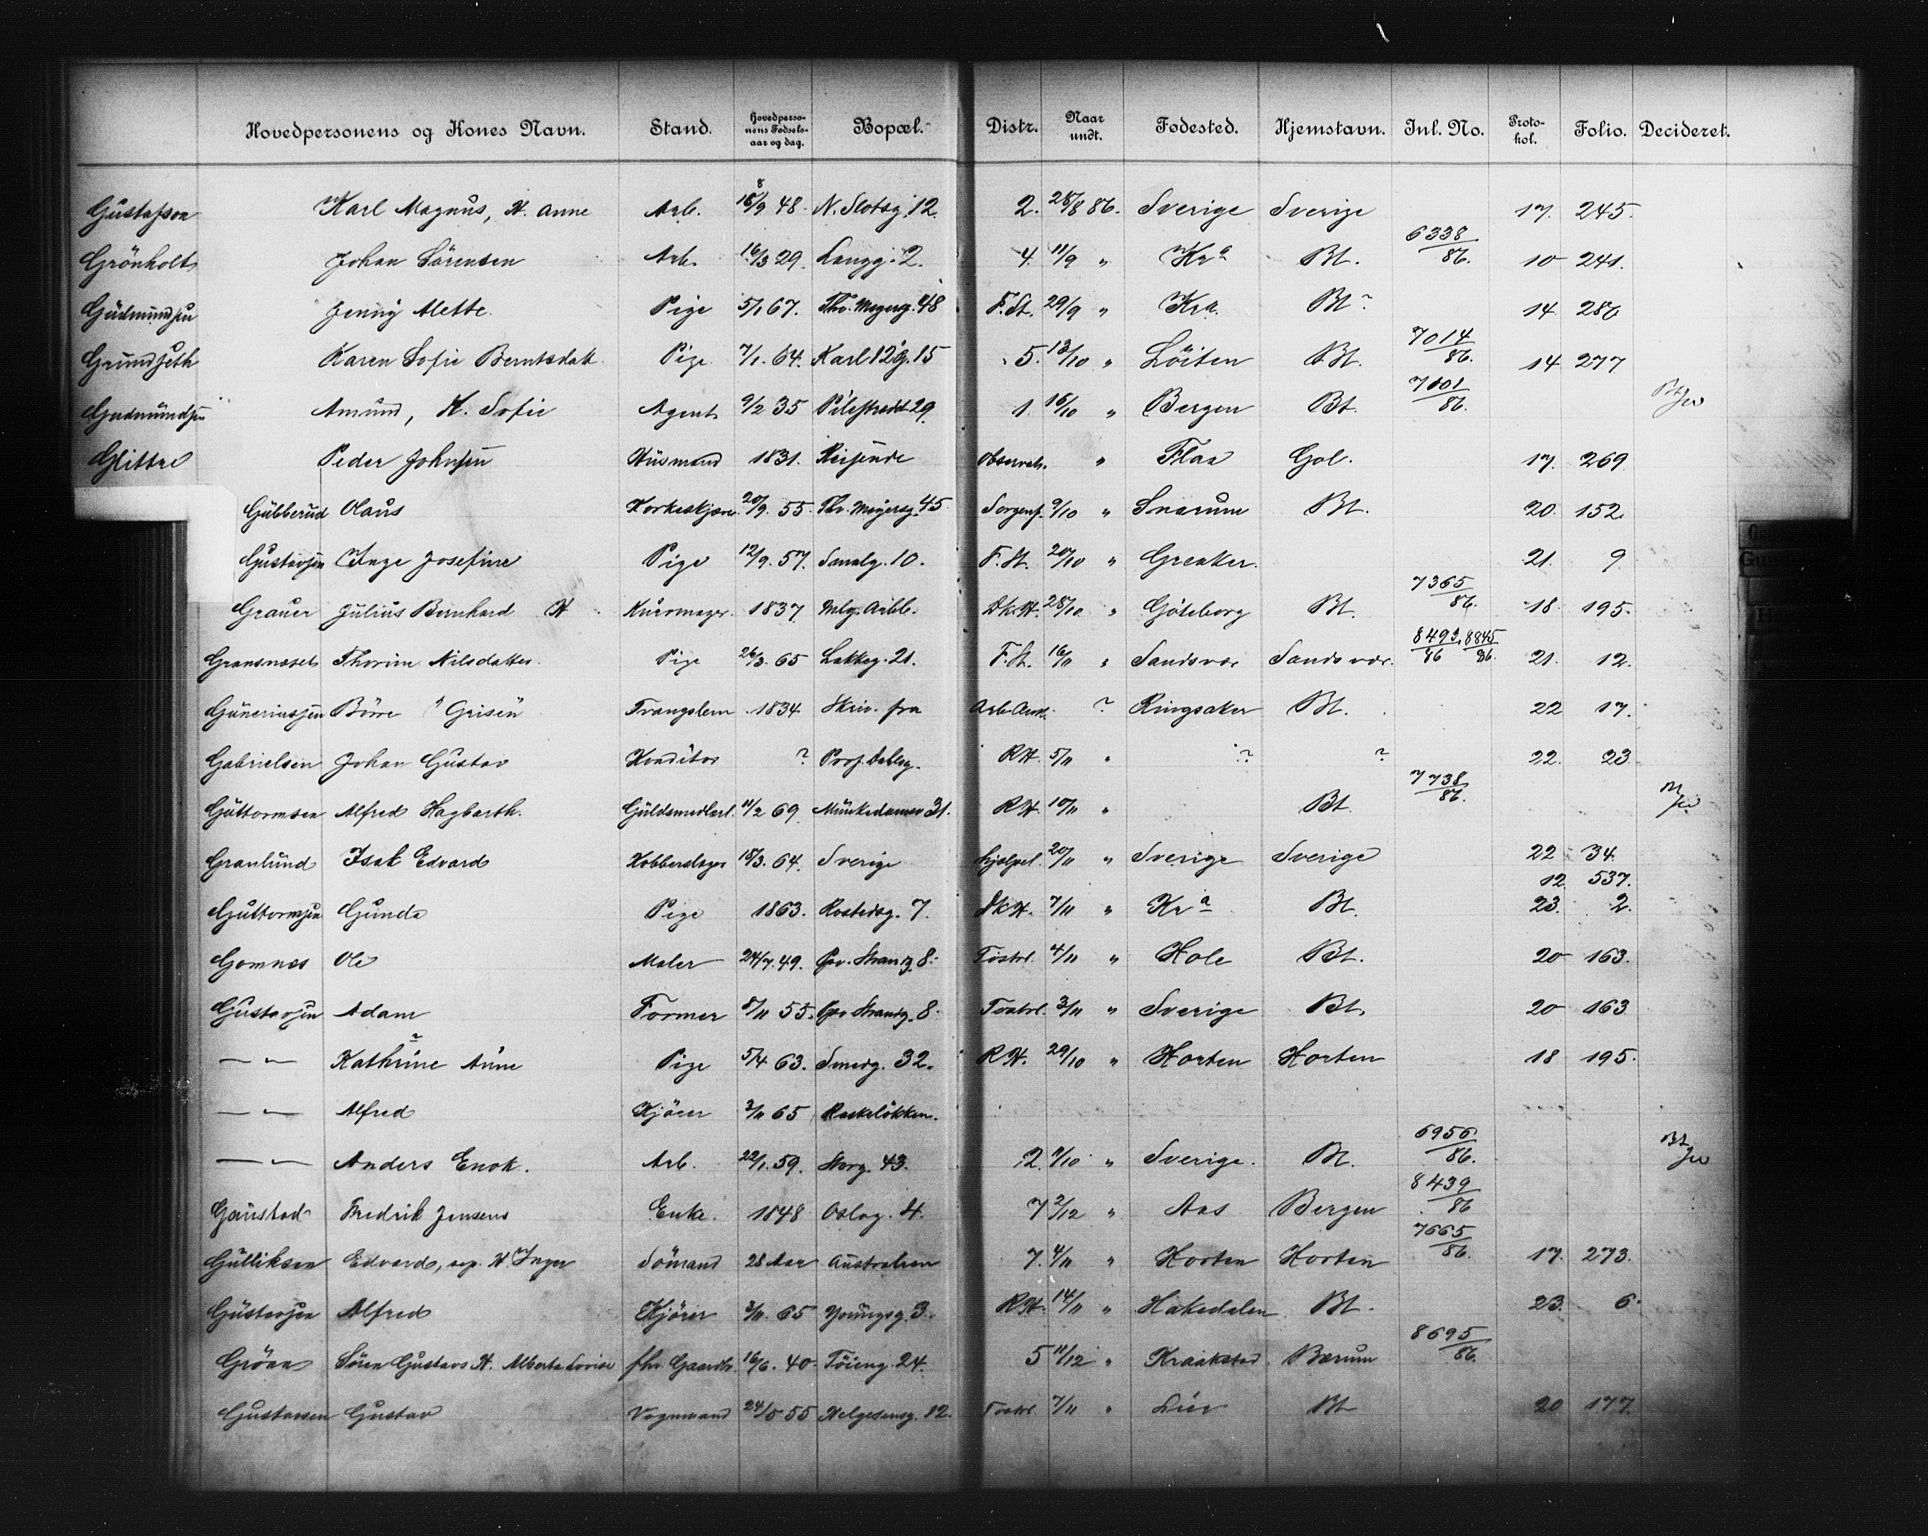 Hovedpersonens og Kones Navn. Stand. Hovedpersonens Fødselsaar og dag. Bopæl. Distr. Naar undt. Fødested. Hjemstavn. Inl. No. Protokol. Folio. Decideret.
Gustafson Karl Magnus, H. Anne Arb. 18/9 48. N. Slotsg. 12. 2. 28/8 86. Sverige Sverige 17. 245.
Grönholt Johan Sörensen Arb. 16/3 29. Langg. 2. 4. 11/9 " Kra Bt. 6338/86. 10 241.
Gudmundsen Jenny Alette. Pige 5/1 67. Th. Meyersg. 48 F. St. 29/9 " Kra. Bt? 14 280
Grundseth Karen Sofie Berntsdatt. Pige 7/1. 64. Karl 12 g. 15 5. 13/10 " Löiten Bt. 7014/86. 14 277
Gudmundsen Amund, H. Sofie Agent 9/2 35 Pilestrædt 29. 1. 16/10 " Bergen Bt. 7101/86. Bt
Glittre Peder Johnsen Husmand 1831. Reisende Observat. " Flaa Gol. 17. 269
Gubberud Olaus Korkeskjærer 20/9. 55. Th. Meyersg. 45. Sorgenf. 9/10 " Snarum Bt. 20. 152.
Gustavsen Inge Josefine Pige 12/9. 57. Smalg. 10. F. St. 20/10 " Greaker. 21. 9
Grauer Julius Bernhard H Kurvmager. 1837 Mlg. Aibb. Dk. H. 28/10 " Göteborg Bt. 7365/86. 18. 195.
Gransnæset Thorine Nilsdatter. Pige 26/3. 65 Lakkeg. 21. F. St. 16/11 " Sandsvær Sandsvær. 8493/86 8845/86. 21. 12.
Guneriussen Börre "Grisen Trangslem 1834. Skriv. fra Arb. Anst. ? Ringsaker Bt. 22 17.
Gabrielsen Johan Gustav Konditor ? Prof. Dahlsg. R. H. 5/11 " ? ? 22. 23
Guttormsen Alfred Hagbarth. Guldsmedlærl. 11/2 69. Munkedamsv 31. R. H. 10/11 " Bt. 7738/86.
Granlund Isak Edvard Kobberslager 18/3. 64. Sverige Hjælpel. 20/11 " Sverige Sverige 22 34.
12 537.
Guttormsen Gunda Pige 1863. Rostedsg. 7. Dk H. 7/11 " Kra Bt. 23. 2.
Gomnæs Ole Maler 24/7. 49. Gov. Strantg. 8. Tostrl. 4/11 " Hole Bt. 20 163.
Gustavsen Adam Former 8/11 55. Gov Strandg. 8. Tostrl. 3/11 " Sverige Bt. 20 163
— " — Kathrine Anne Pige 5/4 63. Smedg. 32. R. H. 29/10 " Horten Horten 18 195.
— " — Alfred Kjörer 3/11 65 Rosteløkken.
— " — Anders Enok. Arb. 22/1. 59. Storg. 43. 2. 9/10 " Sverige. Bt. 6956/86. Bt
Gaustad Fredrik Jensens Enke. 1848 Oslog. 4. 7 2/12 " Aas Bergen 8439/86
Gulliksen Edvard, sep. H. Inger Sömand 28 Aar Australien 7. 4/11 " Horten Horten 7665/86. 17. 273.
Gustavsen Alfred Kjörer 3/11. 65 Youngsg. 3. R. H. 14/11 " Hakedalen Bt. 23. 6.
Gröna Sören Gustavs H. Alberta Lovise fhv. Gaardb. 16/6. 40 Töieng. 24. 5 11/12 " Kraakstad Bærum 8695/86.
Gustavsen Gustav Vognmand 24/5 55 Helgesensg. 82. Tostrl. 7/11 " Lier Bt 20 177.